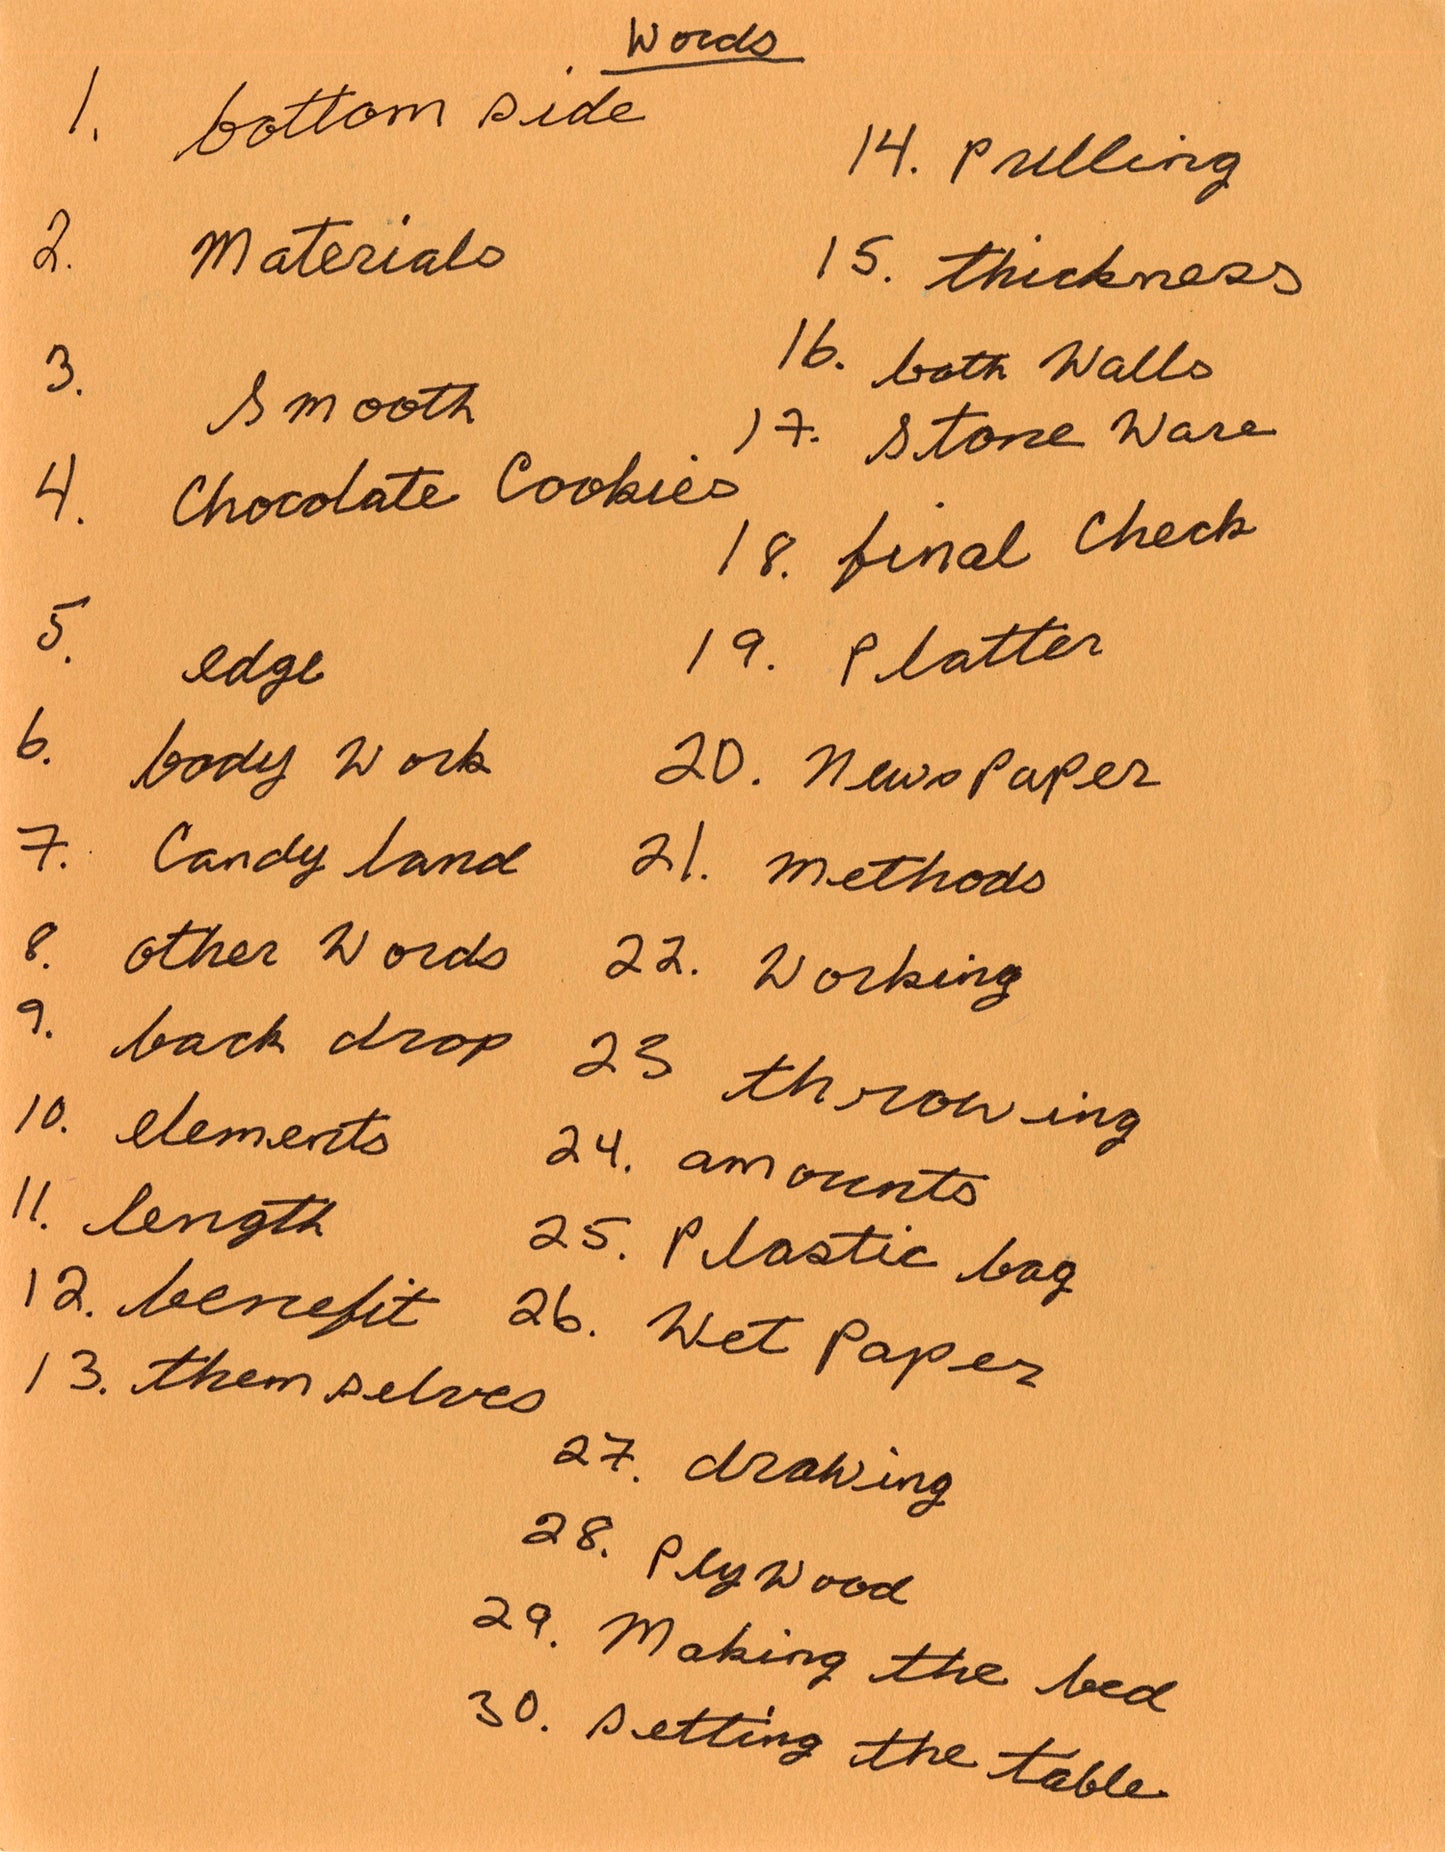 Words
1. bottom side
2. Materials
3. Smooth
4. Chocolate Cookies
5. edge
6. body Work
7. Candy land
8. other Words
9. back drop
10. elements
11. length
12. benefit
13. themselves
14. Pulling
15. thickness
16. both Walls
17. Stone Ware
18. final Check
19. Platter
20. NewsPaPer
21. methods
22. Working
23 throwing
24. amounts
25. Plastic bag
26. Wet Paper
27. drawing
28. PlyWood
29. Making the bed
30. setting the table